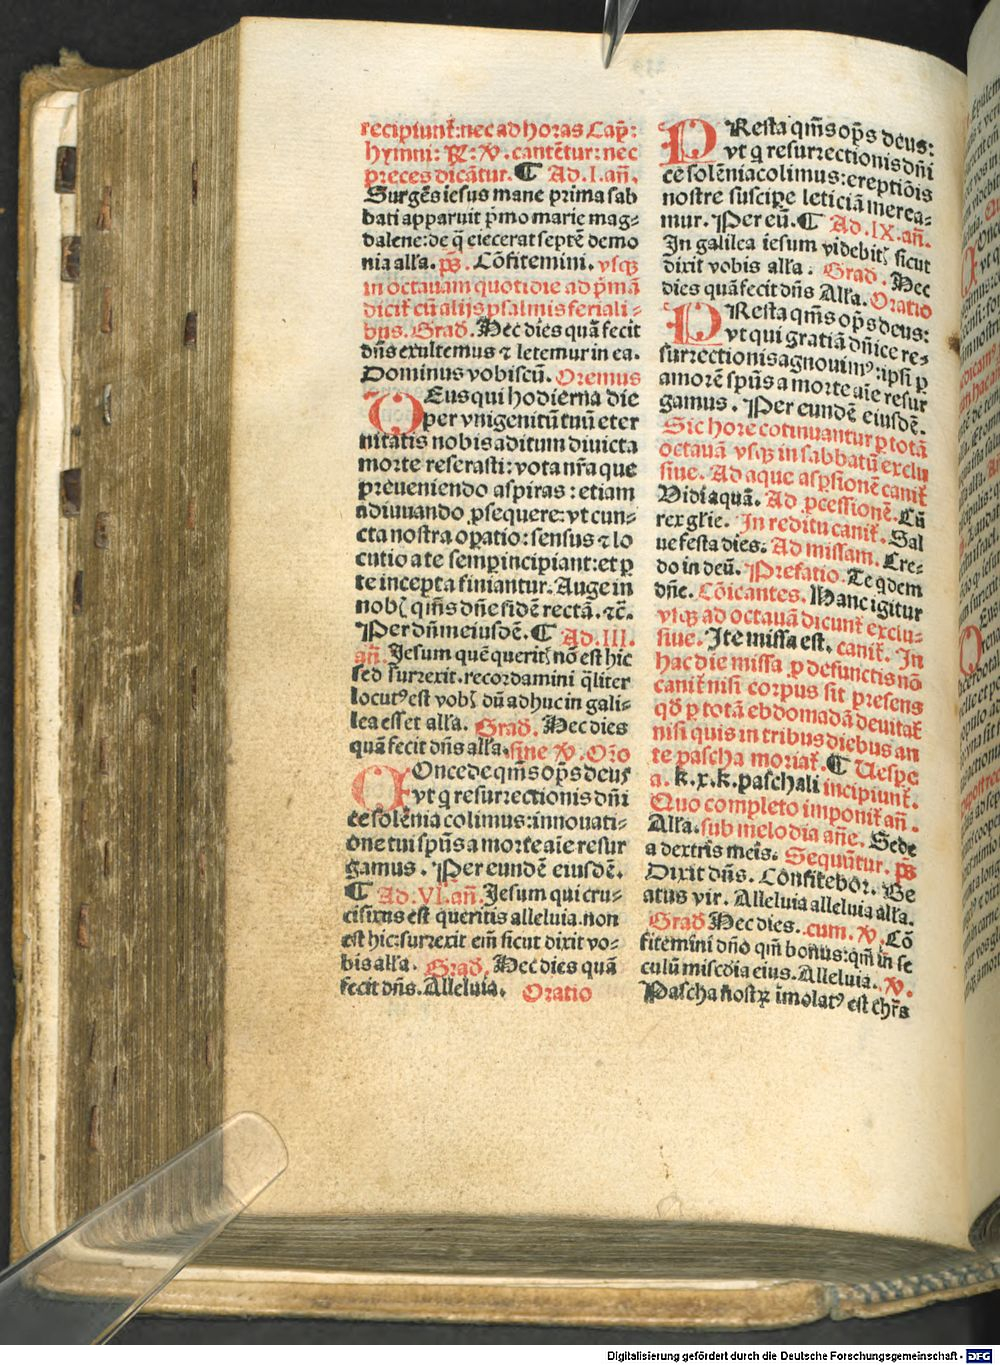 recipiunt̄:nec ad horas Cap̄:
hymni: R̄: V. cantētur: nec
preces dicātur. ¶ Ad.I.añ.
Surgēs iesus mane prima sab
bati apparuit p̄mo marie mag-
dalene: de q̄ eiecerat septē demo
nia alľa. p̄s. Cōfitemini. vsq̄
in octauam quotidie ad p̄mā
dicit̄ cū alijs psalmis feriali-
bus. Grad̄. Hec dies quā fecit
dn̄s exultemus ⁊ letemur in ea.
Dominus vobiscū. Oremus
DEus qui hodierna die
per vnigenitū tuū eter
nitatis nobis aditum diuicta
morte reserasti: vota nr̄a que
preueniendo aspiras: etiam
adiuuando ꝓsequere: vt cun-
cta nostra oꝑatio: sensus ⁊ lo
cutio a te semꝑ incipiant: et ꝑ
te incepta finiantur. Auge in
nobꝭ qm̄s dn̄e fidē rectā. ⁊c̄.
Per dn̄m eiusdē. ¶ Ad.III.
añ. Jesum quē queritꝭ nō est hic
sed surrexit. recordamini q̄liter
locutꝰ est vobꝭ dū adhuc in gali-
lea esset alľa. Grad̄. Hec dies
quā fecit dn̄s alľa. sine V. Or̄o
COncede qm̄s op̄s deus
vt q resurrectionis dn̄i
ce solēnia colimus: innouati-
one tui sp̄us a morte aīe resur
gamus. Per eundē eiusdē.
¶ Ad.VI.añ. Jesum qui cru-
cifixus est queritis alleluia. non
est hic: surrexit em̄ sicut dixit vo-
bis alľa. Grad̄. Hec dies quā
fecit dn̄s. Alleluia. Oratio
PResta qm̄s op̄s deus:
vt q resurrectionis dn̄i
ce solēnia colimus: ereptiōis
nostre suscipe leticiā merea-
mur. Per eū. ¶ Ad.IX.añ.
In galilea iesum videbitꝭ sicut
dixit vobis alľa. Grad. Hec
dies quā fecit dn̄s Alľa. Oratio
PResta qm̄s op̄s deus:
vt qui gratiā dn̄ice re-
surrectionis agnouimꝰ: ipsi ꝑ
amorē sp̄us a morte aīe resur
gamus. Per eundē eiusdē.
Sic hore cotinuantur ꝑ totā
octauā vsq̄ in sabbatū exclu
siue. Ad aque asꝑsionē canit̄
Vidi aquā. Ad ꝓcessionē. Cū
rex gľie. In reditu canit̄. Sal
ue festa dies. Ad missam. Cre-
do in deū. Prefatio. Te q̇dem
dn̄e. Cōicantes. Hanc igitur
vsq̄ ad octauā dicunt̄ exclu-
siue. Ite missa est. canit̄. In
hac die missa ꝓ defunctis nō
canit̄ nisi corpus sit presens
qd̄ ꝑ totā ebdomadā deuitat̄
nisi quis in tribus diebus an
te pascha moriat̄. ¶ Vespe
a. k.x.k. paschali incipiunt̄.
Quo completo imponit̄ añ.
Alľa. sub melodia añe. Sede
a dextris meis. Sequūtur. p̄s
Dixit dn̄s. Cōnfitebōr. Be
atus vir. Alleluia alleluia alľa.
Grad̄ Hec dies. cum. V. Cō
fitemini dn̄o qm̄ bonus: qm̄ in se
culū misc̄dia eius. Alleluia. V.
Pascha nostꝝ īmolatꝰ est chr̄s
Digitalisierung gefördert durch die Deutsche Forschungsgemeinschaft - DFG